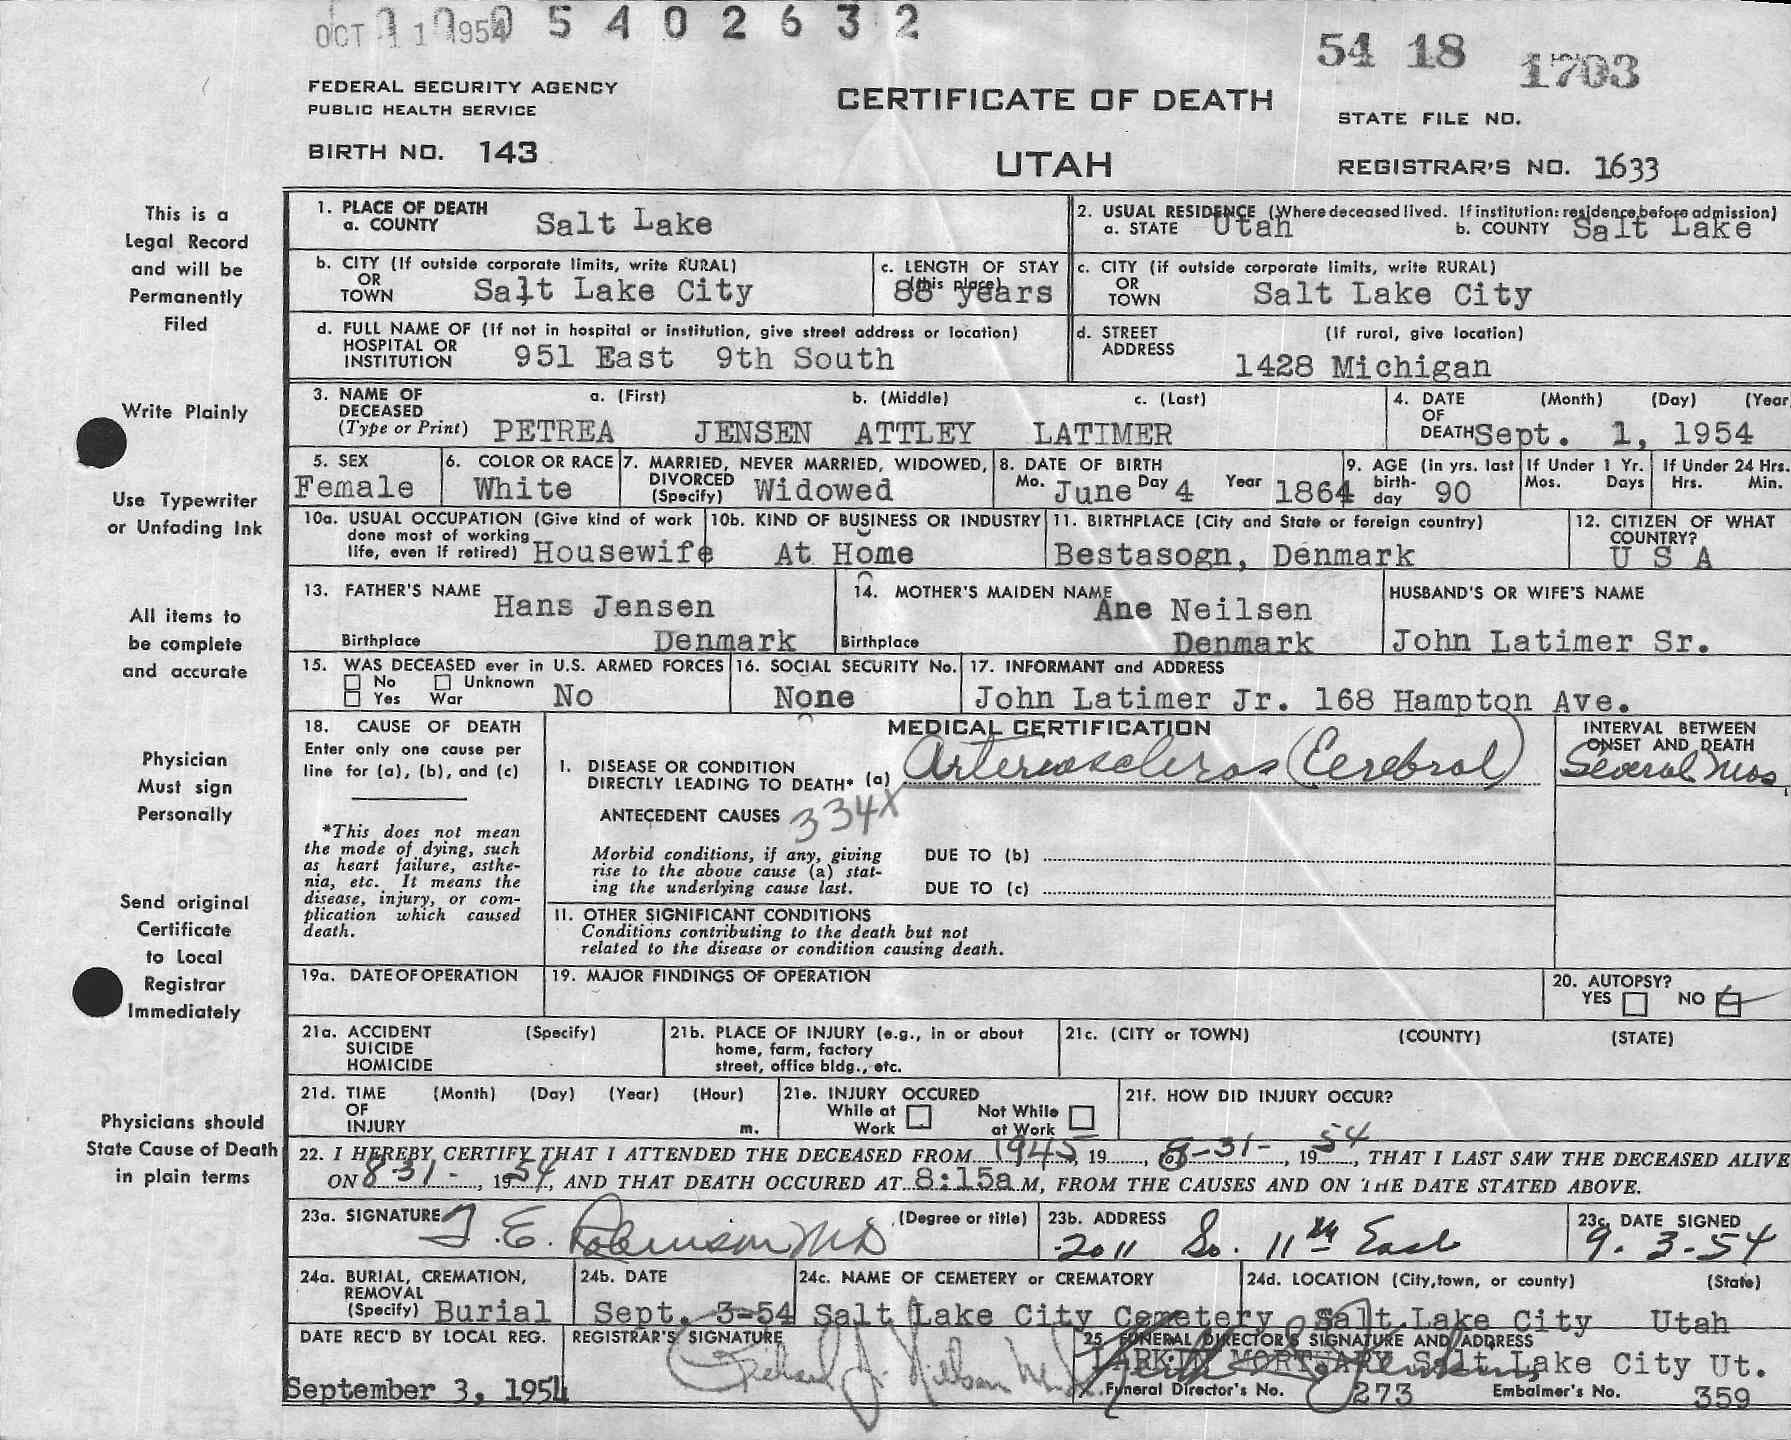 OCT 11 1954 0 5 4 0 2 6 3 2
54 18 1703
FEDERAL SECURITY AGENCY
PUBLIC HEALTH SERVICE
CERTIFICATE OF DEATH
STATE FILE NO.
BIRTH NO. 143
UTAH
REGISTRAR'S NO. 1633
This is a
Legal Record
and will be
Permanently
Filed
Write Plainly
Use Typewriter
or Unfading Ink
All items to
be complete
and accurate
Physician
Must sign
Personally
Send original
Certificate
to Local
Registrar
Immediately
Physicians should
State Cause of Death
in plain terms
1. PLACE OF DEATH
a. COUNTY Salt Lake
2. USUAL RESIDENCE (Where deceased lived. If institution: residence before admission)
a. STATE Utah b. COUNTY Salt Lake
b. CITY (If outside corporate limits, write RURAL)
OR
TOWN Salt Lake City
c. LENGTH OF STAY
(this place)
88 years
c. CITY (if outside corporate limits, write RURAL)
OR
TOWN Salt Lake City
d. FULL NAME OF (If not in hospital or institution, give street address or location)
HOSPITAL OR
INSTITUTION 951 East 9th South
d. STREET (If rural, give location)
ADDRESS
1428 Michigan
3. NAME OF a. (First) b. (Middle) c. (Last)
DECEASED
(Type or Print) PETREA JENSEN ATTLEY LATIMER
4. DATE (Month) (Day) (Year
OF
DEATH Sept. 1, 1954
5. SEX
Female
6. COLOR OR RACE
White
7. MARRIED, NEVER MARRIED, WIDOWED,
DIVORCED
(Specify) Widowed
8. DATE OF BIRTH
Mo. June Day 4 Year 1864
9. AGE (in yrs. last
birth-
day 90
If Under 1 Yr.
Mos. Days
If Under 24 Hrs.
Hrs. Min.
10a. USUAL OCCUPATION (Give kind of work
done most of working
life, even if retired) Housewife
10b. KIND OF BUSINESS OR INDUSTRY
At Home
11. BIRTHPLACE (City and State or foreign country)
Bestasogn, Denmark
12. CITIZEN OF WHAT
COUNTRY?
U S A
13. FATHER'S NAME Hans Jensen
Birthplace Denmark
14. MOTHER'S MAIDEN NAME Ane Neilsen
Birthplace Denmark
HUSBAND'S OR WIFE'S NAME
John Latimer Sr.
15. WAS DECEASED ever in U.S. ARMED FORCES
No Unknown
Yes War No
16. SOCIAL SECURITY No.
None
17. INFORMANT and ADDRESS
John Latimer Jr. 168 Hampton Ave.
18. CAUSE OF DEATH
Enter only one cause per
line for (a), (b), and (c)
*This does not mean
the mode of dying, such
as heart failure, asthe-
nia, etc. It means the
disease, injury, or com-
plication which caused
death.
MEDICAL CERTIFICATION
I. DISEASE OR CONDITION
DIRECTLY LEADING TO DEATH* (a) Arteriosclerosis (Cerebral)
ANTECEDENT CAUSES 334X
Morbid conditions, if any, giving
rise to the above cause (a) stat-
ing the underlying cause last.
DUE TO (b)
DUE TO (c)
INTERVAL BETWEEN
ONSET AND DEATH
Several Mos
II. OTHER SIGNIFICANT CONDITIONS
Conditions contributing to the death but not
related to the disease or condition causing death.
19a. DATE OF OPERATION
19. MAJOR FINDINGS OF OPERATION
20. AUTOPSY?
YES NO
21a. ACCIDENT (Specify)
SUICIDE
HOMICIDE
21b. PLACE OF INJURY (e.g., in or about
home, farm, factory
street, office bldg., etc.
21c. (CITY or TOWN) (COUNTY) (STATE)
21d. TIME (Month) (Day) (Year) (Hour)
OF
INJURY m.
21e. INJURY OCCURED
While at Not While
Work at Work
21f. HOW DID INJURY OCCUR?
22. I HEREBY CERTIFY THAT I ATTENDED THE DECEASED FROM 1945, 19, to 8-31-, 1954, THAT I LAST SAW THE DECEASED ALIVE
ON 8-31-, 1954, AND THAT DEATH OCCURED AT 8:15a M, FROM THE CAUSES AND ON THE DATE STATED ABOVE.
23a. SIGNATURE T. E. Robinson MD (Degree or title)
23b. ADDRESS
2011 So. 11th East
23c. DATE SIGNED
9-3-54
24a. BURIAL, CREMATION,
REMOVAL
(Specify) Burial
24b. DATE
Sept. 3-54
24c. NAME OF CEMETERY or CREMATORY
Salt Lake City Cemetery
24d. LOCATION (City, town, or county) (State)
Salt Lake City Utah
DATE REC'D BY LOCAL REG.
September 3, 1954
REGISTRAR'S SIGNATURE
Richard J. Nelson M.D.
25. FUNERAL DIRECTOR'S SIGNATURE AND ADDRESS
LARKIN MORTUARY Salt Lake City Ut.
Funeral Director's No. 273 Embalmer's No. 359